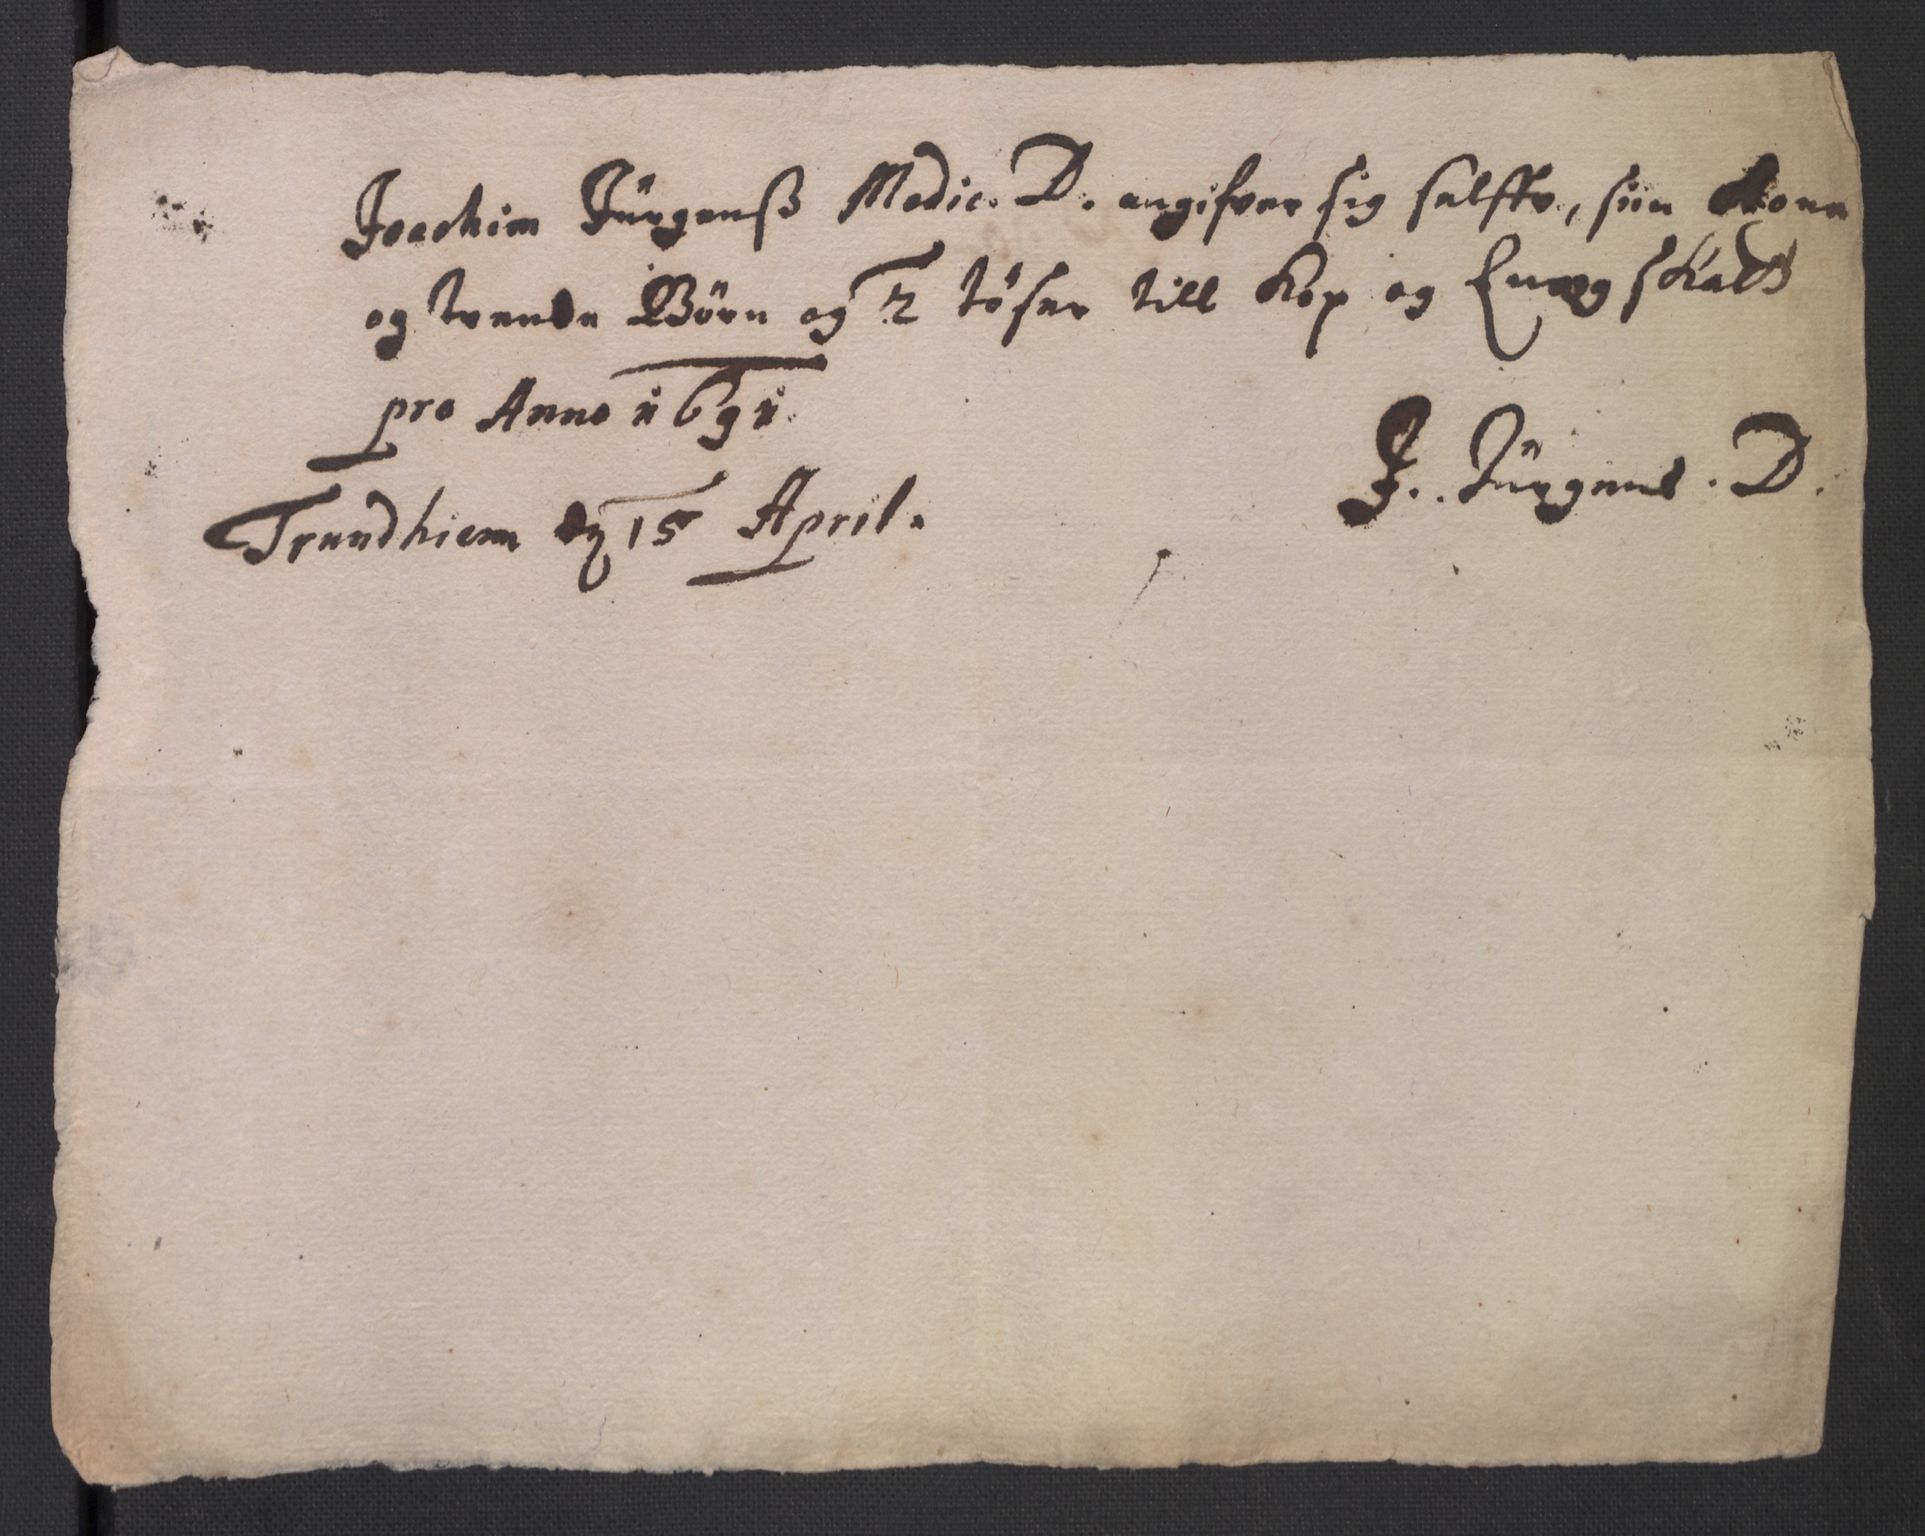 Joachim Jürgensß Medic. D. angifver sig selffv, siin Kone
og trende Börn og 2 töser till Kop og Qvæg skatt
pro Anno 1691.
J. Jürgens. D.
Trundhiem dy 15 April.